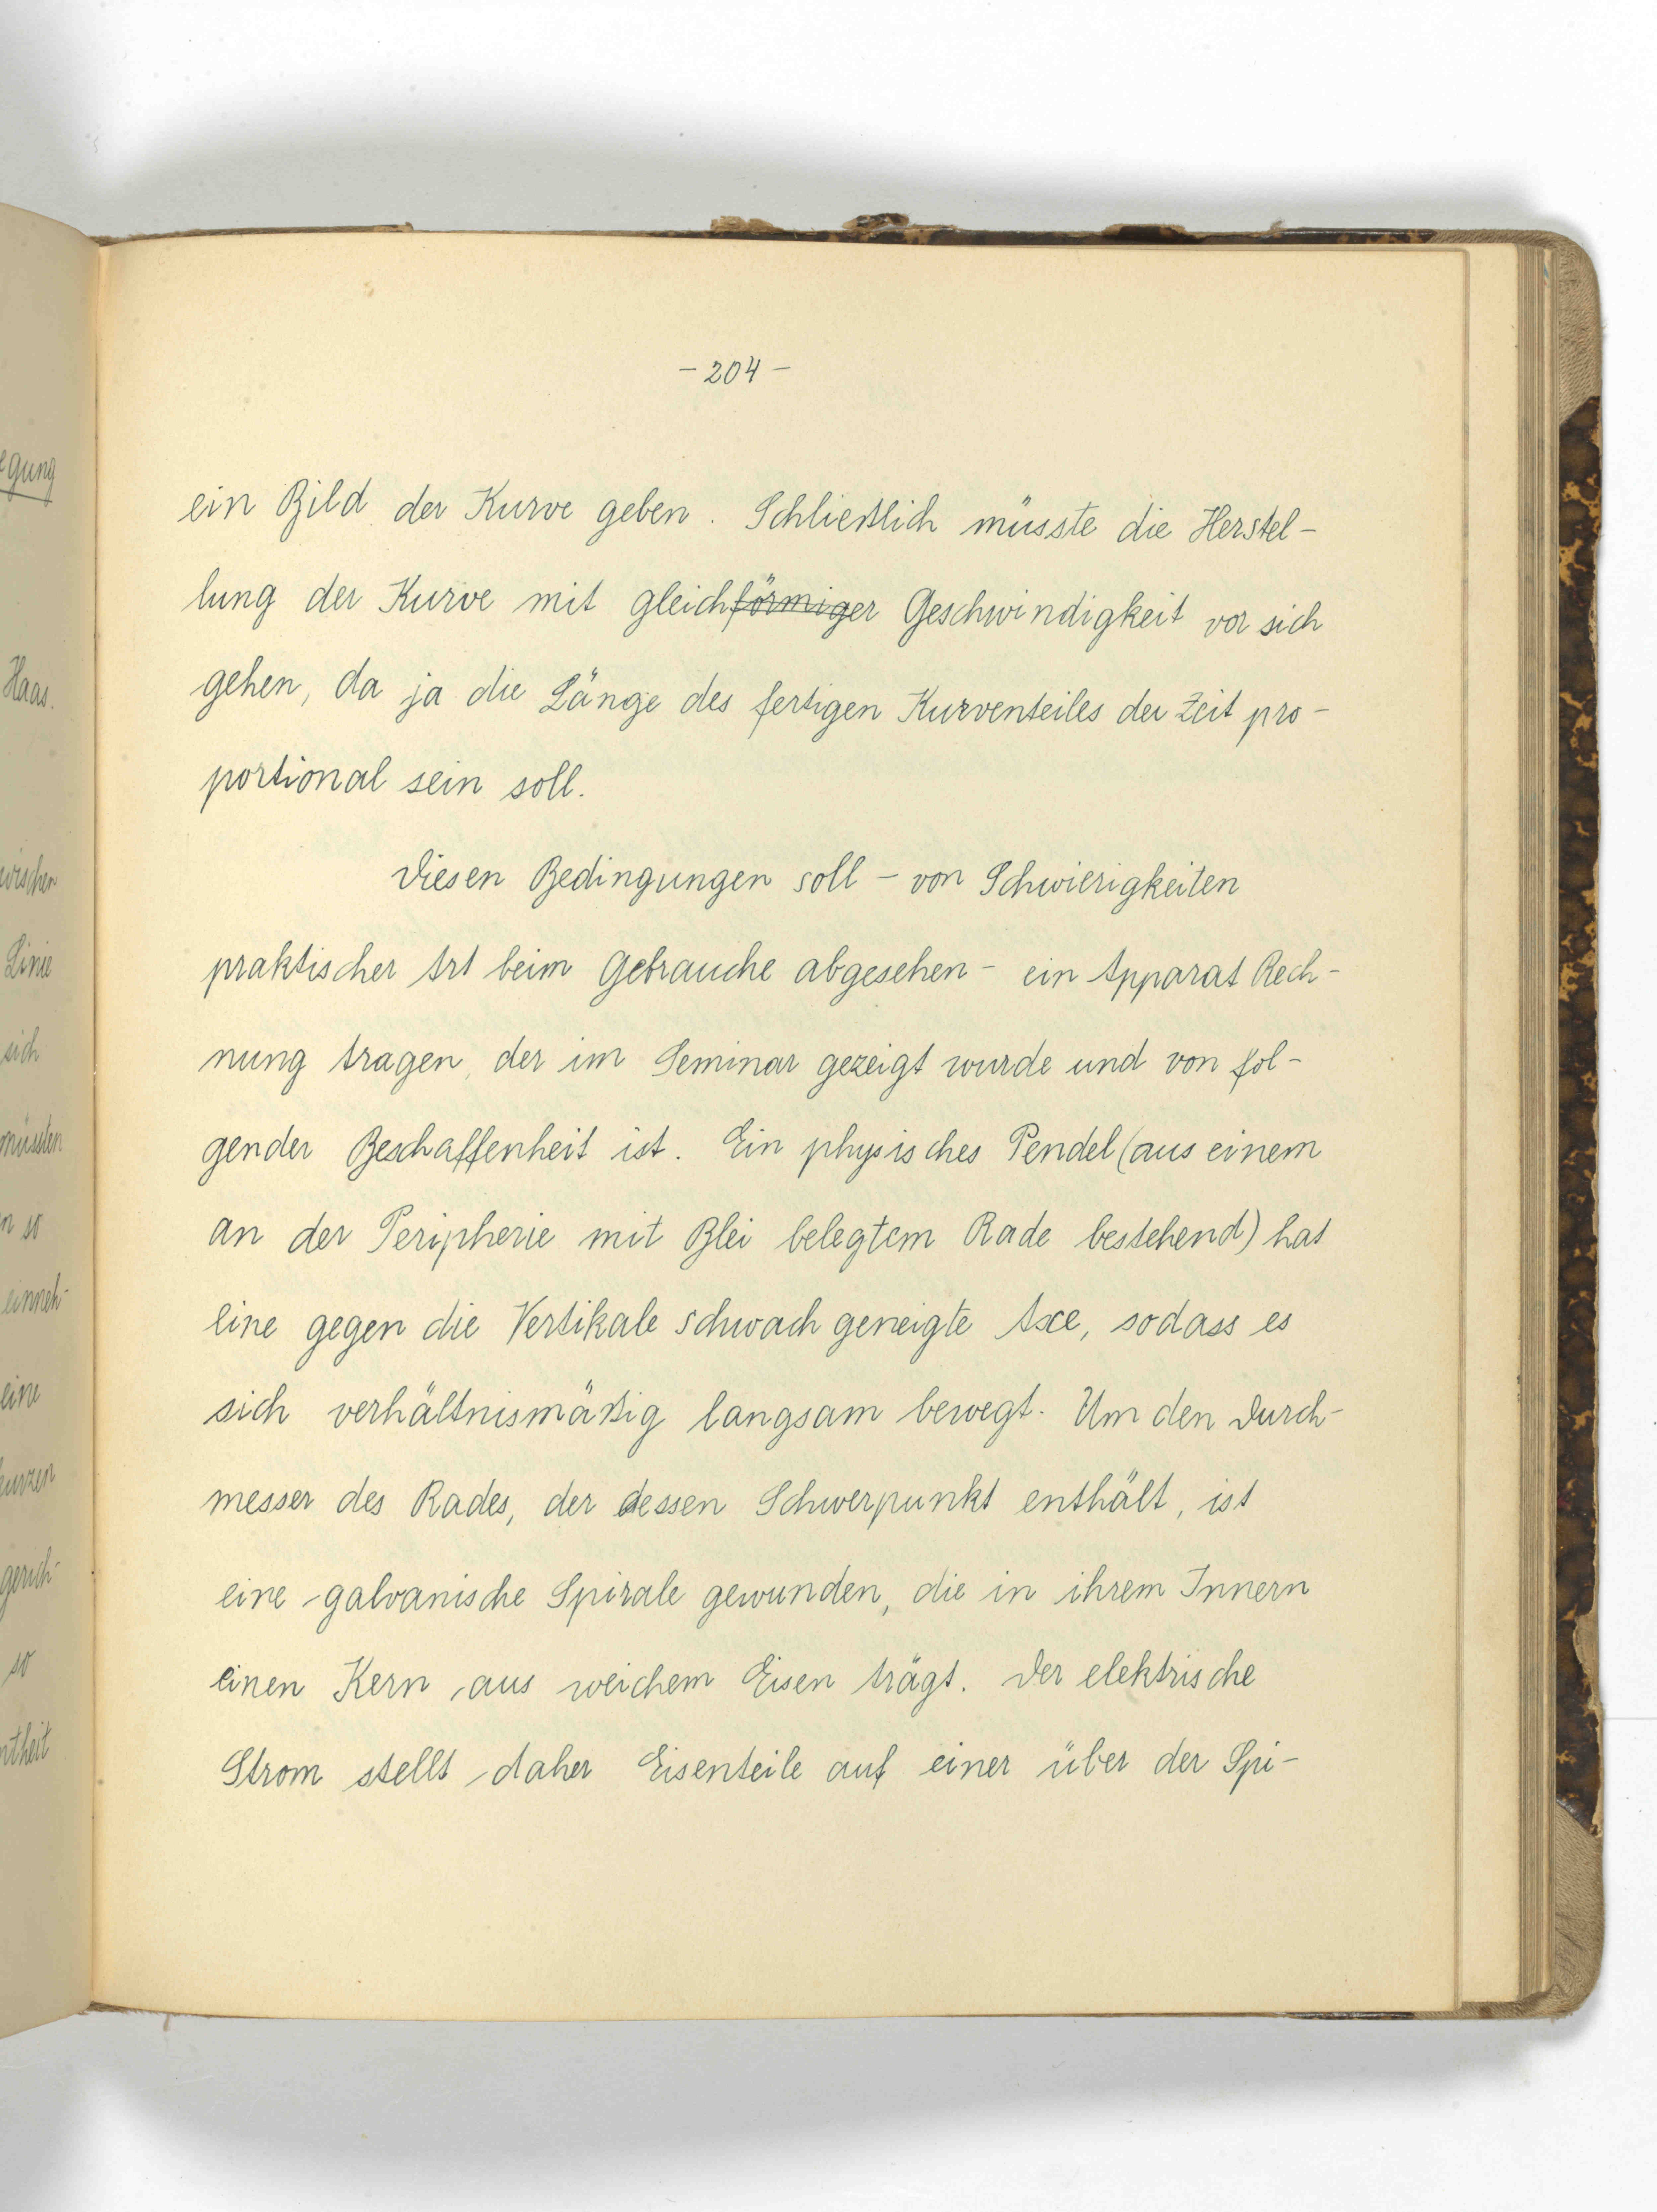 - 204 -
ein Bild der Kurve geben. Schließlich müsste die Herstel-
lung der Kurve mit gleichförmiger Geschwindigkeit vor sich
gehen, da ja die Länge des fertigen Kurventeiles der Zeit pro-
portional sein soll.
Diesen Bedingungen soll - von Schwierigkeiten
praktischer Art beim Gebrauche abgesehen - ein Apparat Rech-
nung tragen, der im Seminar gezeigt wurde und von fol-
gender Beschaffenheit ist. Ein physisches Pendel (aus einem
an der Peripherie mit Blei belegtem Rade bestehend) hat
eine gegen die Vertikale schwach geneigte Axe, sodass es
sich verhältnismäßig langsam bewegt. Um den Durch-
messer des Rades, der dessen Schwerpunkt enthält, ist
eine galvanische Spirale gewunden, die in ihrem Innern
einen Kern aus weichem Eisen trägt. Der elektrische
Strom stellt daher Eisenteile auf einer über der Spi-
egung
Haas.
wischen
Linie
sich
müssten
so
einneh-
eine
kurzen
gerich-
so
ntheit